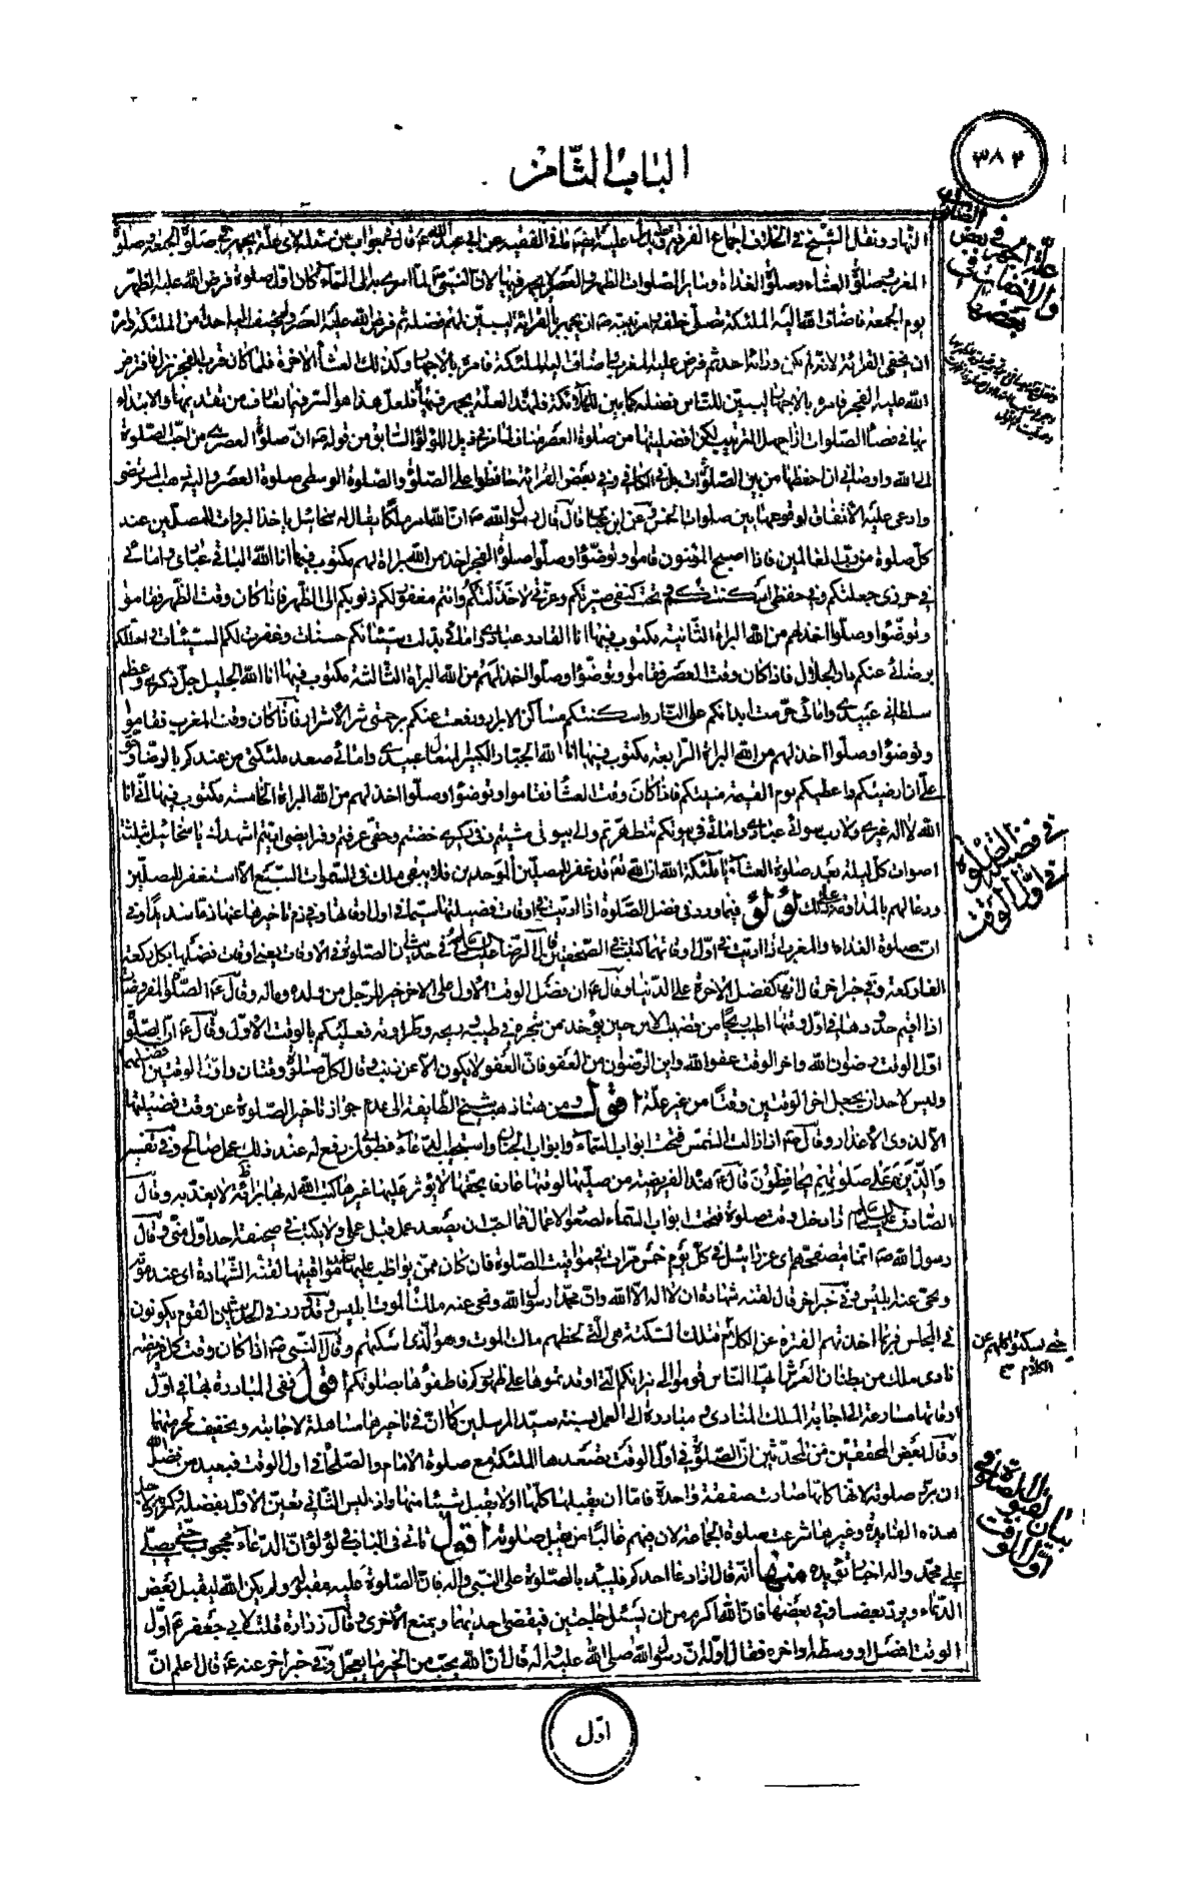 ٣٨٢
الباب الثامن
النهار ونقل الشيخ في الخلاف اجماع الفرقة عليه وفي الفقيه عن ابي عبد الله قال في جواب من سئله لاى علة يجهر في صلوة الجمعة وصلوة
المغرب وصلوة العشاء وصلوة الغداة وساير الصلوات الظهر والعصر لا يجهر فيها لان النبي لما اسرى به الى السماء كان اول صلوة فرض الله عليه الظهر
يوم الجمعة فاضاف الله اليه الملئكة تصلى خلفه فامر نبيه ان يجهر بالقرائة ليبين لهم فضله ثم فرض الله عليه العصر ولم يضف اليه احدا من الملئكة وامره
ان يخفى القرائة لانه لم يكن ورائه احد ثم فرض عليه المغرب واضاف اليه الملئكة فامره بالاجهار وكذلك العشاء الاخرة فلما كان قرب الفجر نزل فافترض
الله عليه الفجر فامره بالاجهار ليبين للناس فضله كما بين للملائكة فلهذه العلة يجهر فيها فلعل هذا هو السر في
الى الله واوصانى ان احفظها من بين الصلوات بل في الكافي وفي بعض القرائة حافظوا على الصلوات والصلوة الوسطى صلوة العصر واليه ذهب المرتضى
وادعى عليه الاتفاق لوقوعها بين صلوات الخمس وعن ابن عباس قال قال رسول الله ان لله ملكا يقال له سخائيل ياخذ البروات للمصلين عند
كل صلوة من رب العالمين فاذا اصبح المؤمنون قاموا وتوضؤا وصلوا صلوة الفجر اخذ من الله براة لهم مكتوب فيها انا الله الباقى عبادى وامائى
في حرزى جعلتكم وفي حفظى وتحت كنفى صيرتكم وعزتى لا خذلتكم وانتم مغفور لكم ذنوبكم الى الظهر فاذا كان وقت الظهر فقاموا
وتوضؤا وصلوا اخذ لهم من الله البراة الثانية مكتوب فيها انا الله القادر عبادى وامائى بدلت سيئاتكم حسنات وغفرت لكم السيئات واحللتكم
برضائى عنكم دار الجلال فاذا كان وقت العصر فقاموا وتوضؤا وصلوا اخذ لهم من الله البراة الثالثة مكتوب فيها انا الله الجليل جل ذكرى وعظم
سلطانى عبيدى وامائى حرمت ابدانكم على النار واسكنتكم مساكن الابرار ودفعت عنكم برحمتى شر الاشرار فاذا كان وقت المغرب فقاموا
وتوضؤا وصلوا اخذ لهم من الله البراة الرابعة مكتوب فيها انا الله الجبار الكبير المتعال عبيدى وامائى صعد ملئكتى من عندكم بالرضا وحق
على ان ارضيكم واعطيكم يوم القيمة منيتكم فاذا كان وقت العشاء فقاموا وتوضؤا وصلوا اخذ لهم من الله البراة الخامسة مكتوب فيها انى انا
الله لا اله غيرى ولا رب سوائى عبادى وامائى في بيوتكم تطهرتم والى بيوتى مشيتم وفي ذكرى خضتم وحقى عرفتم وفرايضى اديتم اشهدك يا سخائيل ثلثة
اصوات كل ليلة بعد صلوة العشاء يا ملئكة الله ان الله تعالى قد غفر للمصلين الموحدين فلا يبقى ملك في السموات السبع الا استغفر للمصلين
ودعا لهم بالمداومة على ذلك لؤلؤ فيما ورد في فضل الصلوة اذا اديت في اوقات فضيلتها لاسيما في اول اوقاتها وفي ذم تاخيرها عنها
ان صلوة الغداة والمغرب اذا اديت في اول وقتهما كتبت في الصحيفتين قال الرضا في حديث ان الصلوة في الاوقات يعنى اوقات فضلها بكل ركعة
الف ركعة وفي خبر اخر قال انها كفضل الاخرة على الدنيا وقال ان فضل الوقت الاول على الاخر خير للرجل من ولده وماله وقال الصلوة المفروضات
اذا اقيم حدودها في اول وقتها اطيب ريحا من قضيب الاس حين يؤخذ من شجره في طيبه وريحه وطراوته فعليكم بالوقت الاول وقال ان الصلوة
اول الوقت رضوان الله واخر الوقت عفو الله واين الرضوان من العفو فان العفو لا يكون الا عن ذنب وقال لكل صلوة وقتان واول الوقتين افضلهما
وليس لاحد ان يجعل اخر الوقتين وقتا من غير علة اقول ومن هنا ذهب شيخ الطايفة الى عدم جواز تاخير الصلوة عن وقت فضيلتها
الا لذوى الاعذار وقال اذا زالت الشمس فتحت ابواب السماء وابواب الجنان واستجيب الدعاء فطوبى لمن رفع له عند ذلك عمل صالح وفي تفسير
وَالَّذِينَ هُمْ عَلى صَلوتِهِمْ يُحافِظُونَ قال هذه الفريضة من صليها لوقتها عارفا بحقها لا يؤثر عليها غيرها كتب الله له بها برائة لا يعذبه وقال
الصادق اذا دخل وقت صلوة فتحت ابواب السماء لصعود الاعمال فما احب ان يصعد عمل قبل عملى ولا يكتب في صحيفة احد اول منى وقال
رسول الله انما يتصفحهم اى عزرائيل في كل يوم خمس مرات في مواقيت الصلوة فان كان ممن يواظب عليها عند مواقيتها لقنه الشهادة اى عند موته
ونحى عنه ابليس وفي خبر اخر قال لقنه شهادة ان لا اله الا الله وان محمدا رسول الله ونحى عنه ملك الموت ابليس وقد ورد في الحديث القوم يكونون
في المجلس فربما اخذتهم الفترة عن الكلام فتلك السكتة هى التى يلحظهم ملك الموت وهو الذى اسكتهم وقال النبي اذا كان وقت كل فريضة
نادى ملك من بطنان العرش ايها الناس قوموا الى نيرانكم التى اوقدتموها على ظهوركم فاطفؤها بصلوتكم اقول ففى المبادرة بها في اول
اوقاتها مسارعة الى اجابة الملك المنادى ومبادرة الى العمل بسنة سيد المرسلين كما ان في تاخيرها مساهلة لاجابته وتخفيف
وقال بعض المحققين من المحدثين ان الصلوة في اول الوقت يصعدها الملئكة مع صلوة الامام والصلحاء في اول الوقت فبعيد من فضل الله
ان يرد صلوته لانها كانها صارت صفقة واحدة فاما ان يقبلها كلها او لا يقبل شيئا منها واذ ليس الثانى تعين الاول بفضله وكرمه ولاجل
هذه الفايدة وغيرها شرعت صلوة الجماعة لان فيهم غالبا من يقبل صلوته اقول تاتى في الباب في لؤلؤ ان الدعاء محجوب حتى يصلى
على محمد واله اخبار تؤيده منها انه قال اذا دعا احدكم فليبدء بالصلوة على النبي واله فان الصلوة عليه مقبولة ولم يكن الله ليقبل بعض
الدعاء ويرد بعضا وفي بعضها فان الله اكرم من ان يسئل حاجتين فيقضى احديهما ويمنع الاخرى وقال زرارة قلت لابى جعفر اول
الوقت افضل او وسطه او اخره فقال اوله ان رسول الله صلى الله عليه واله قال ان الله يحب من الخير ما يعجل وفي خبر اخر عنه قال اعلم ان
اول
علة الجهر في بعض الصلوات
والاخفات في
بعضها
في فضل الصلوة
في اول الوقت
حتى سكتوا كلهم عن
الكلام
بيان لقبول الصلوة في
اول الوقت